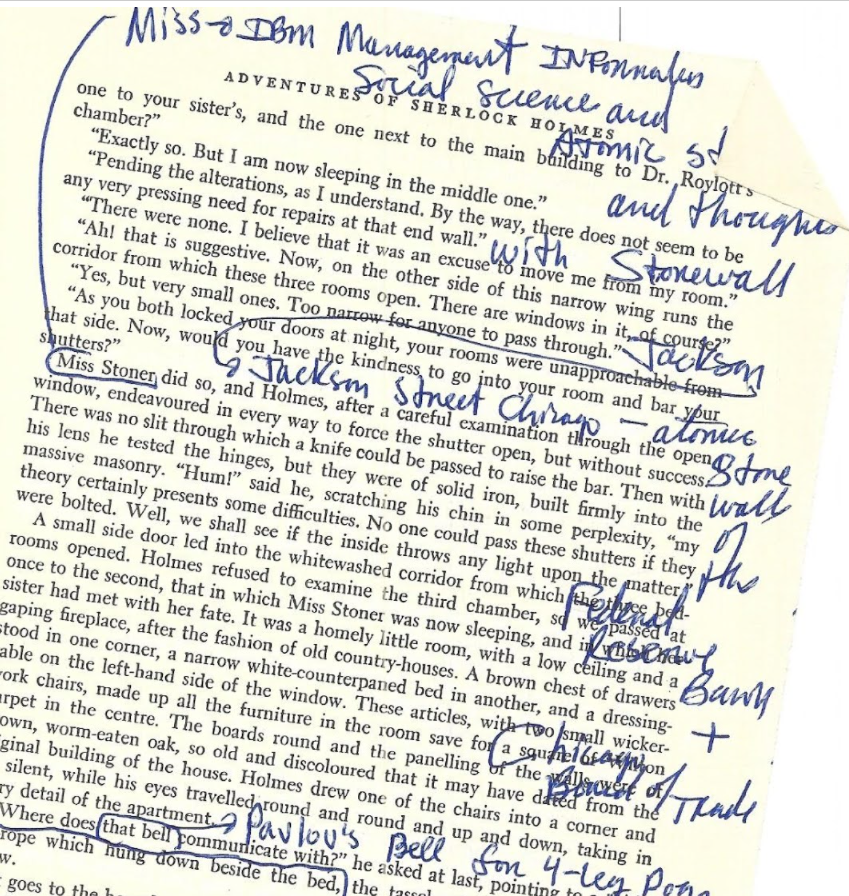 Miss → IBM Management
Social Science and
Atomic
and thoughts
with Stonewall
Jackson
Jackson Street Chicago — atomic
Stone
wall
of
the
Federal
Reserve
Bank
+
Chicago
Board of Trade
Pavlov's Bell for 4-leg
ADVENTURES OF SHERLOCK HOLMES
one to your sister's, and the one next to the main building to Dr. Roylott's
chamber?"
"Exactly so. But I am now sleeping in the middle one."
"Pending the alterations, as I understand. By the way, there does not seem to be
any very pressing need for repairs at that end wall."
"There were none. I believe that it was an excuse to move me from my room."
"Ah! that is suggestive. Now, on the other side of this narrow wing runs the
corridor from which these three rooms open. There are windows in it, of course?"
"Yes, but very small ones. Too narrow for anyone to pass through."
"As you both locked your doors at night, your rooms were unapproachable from
that side. Now, would you have the kindness to go into your room and bar your
shutters?"
Miss Stoner did so, and Holmes, after a careful examination through the open
window, endeavoured in every way to force the shutter open, but without success.
There was no slit through which a knife could be passed to raise the bar. Then with
his lens he tested the hinges, but they were of solid iron, built firmly into the
massive masonry. "Hum!" said he, scratching his chin in some perplexity, "my
theory certainly presents some difficulties. No one could pass these shutters if they
were bolted. Well, we shall see if the inside throws any light upon the matter."
A small side door led into the whitewashed corridor from which the three bed-
rooms opened. Holmes refused to examine the third chamber, so we passed at
once to the second, that in which Miss Stoner was now sleeping, and in which her
sister had met with her fate. It was a homely little room, with a low ceiling and a
gaping fireplace, after the fashion of old country-houses. A brown chest of drawers
stood in one corner, a narrow white-counterpaned bed in another, and a dressing-
able on the left-hand side of the window. These articles, with two small wicker-
ork chairs, made up all the furniture in the room save for a square of Wilton
rpet in the centre. The boards round and the panelling of the walls were of
own, worm-eaten oak, so old and discoloured that it may have dated from the
ginal building of the house. Holmes drew one of the chairs into a corner and
silent, while his eyes travelled round and round and up and down, taking in
ry detail of the apartment.
Where does that bell communicate with?" he asked at last, pointing to a
rope which hung down beside the bed, the tassel
w.
goes to the